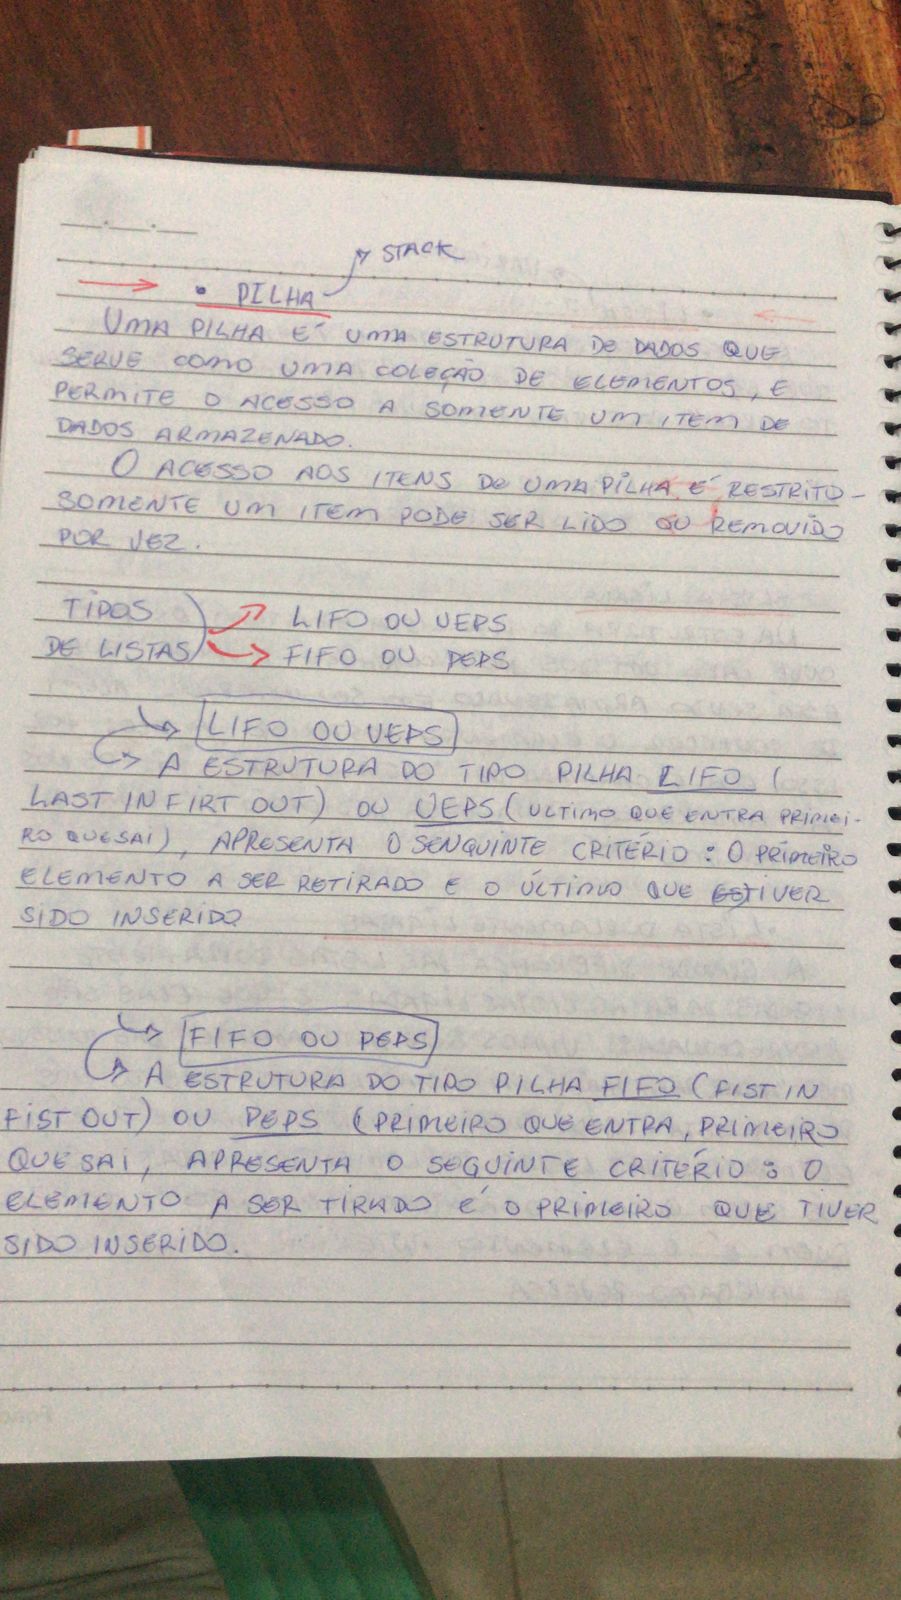 STACK
• PILHA
UMA PILHA É UMA ESTRUTURA DE DADOS QUE
SERVE COMO UMA COLEÇÃO DE ELEMENTOS, E
PERMITE O ACESSO A SOMENTE UM ITEM DE
DADOS ARMAZENADO.
O ACESSO AOS ITENS DE UMA PILHA É RESTRITO -
SOMENTE UM ITEM PODE SER LIDO OU REMOVIDO
POR VEZ.
TIPOS
DE LISTAS
LIFO OU UEPS
FIFO OU PEPS
LIFO OU UEPS
A ESTRUTURA DO TIPO PILHA LIFO (
LAST IN FIRT OUT) OU UEPS (ULTIMO QUE ENTRA PRIMEI-
RO QUE SAI), APRESENTA O SENQUINTE CRITÉRIO: O PRIMEIRO
ELEMENTO A SER RETIRADO E O ÚLTIMO QUE ESTIVER
SIDO INSERIDO
FIFO OU PEPS
A ESTRUTURA DO TIPO PILHA FIFO (FIST IN
FIST OUT) OU PEPS (PRIMEIRO QUE ENTRA, PRIMEIRO
QUE SAI, APRESENTA O SEGUINTE CRITÉRIO: O
ELEMENTO A SER TIRADO É O PRIMEIRO QUE TIVER
SIDO INSERIDO.